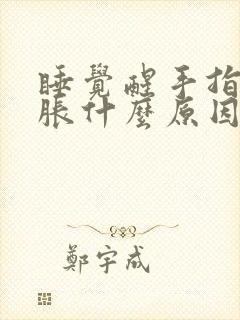 睡覺醒手指
脹什麼原因
鄭宇成